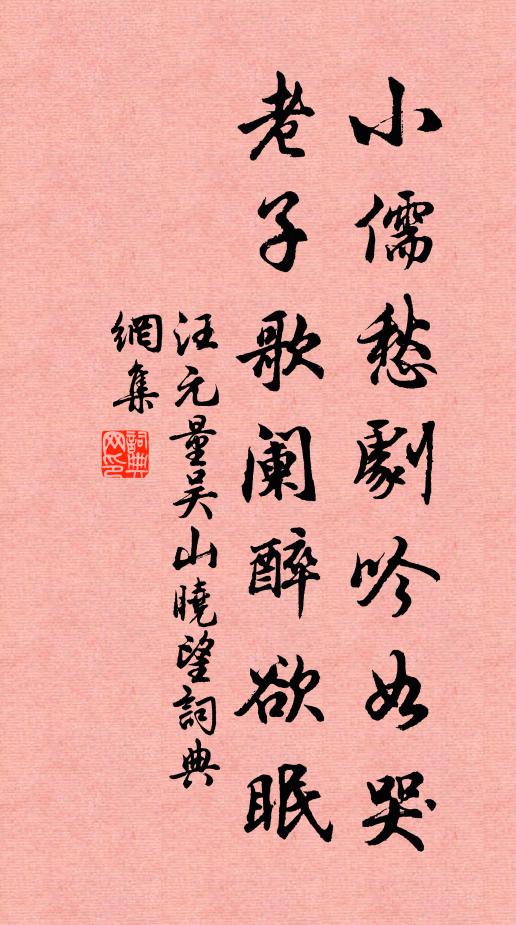 小儒愁劇吟如哭
老子歌阑醉欲眠
汪元量吴山曉望詞典
網集
詞典网印